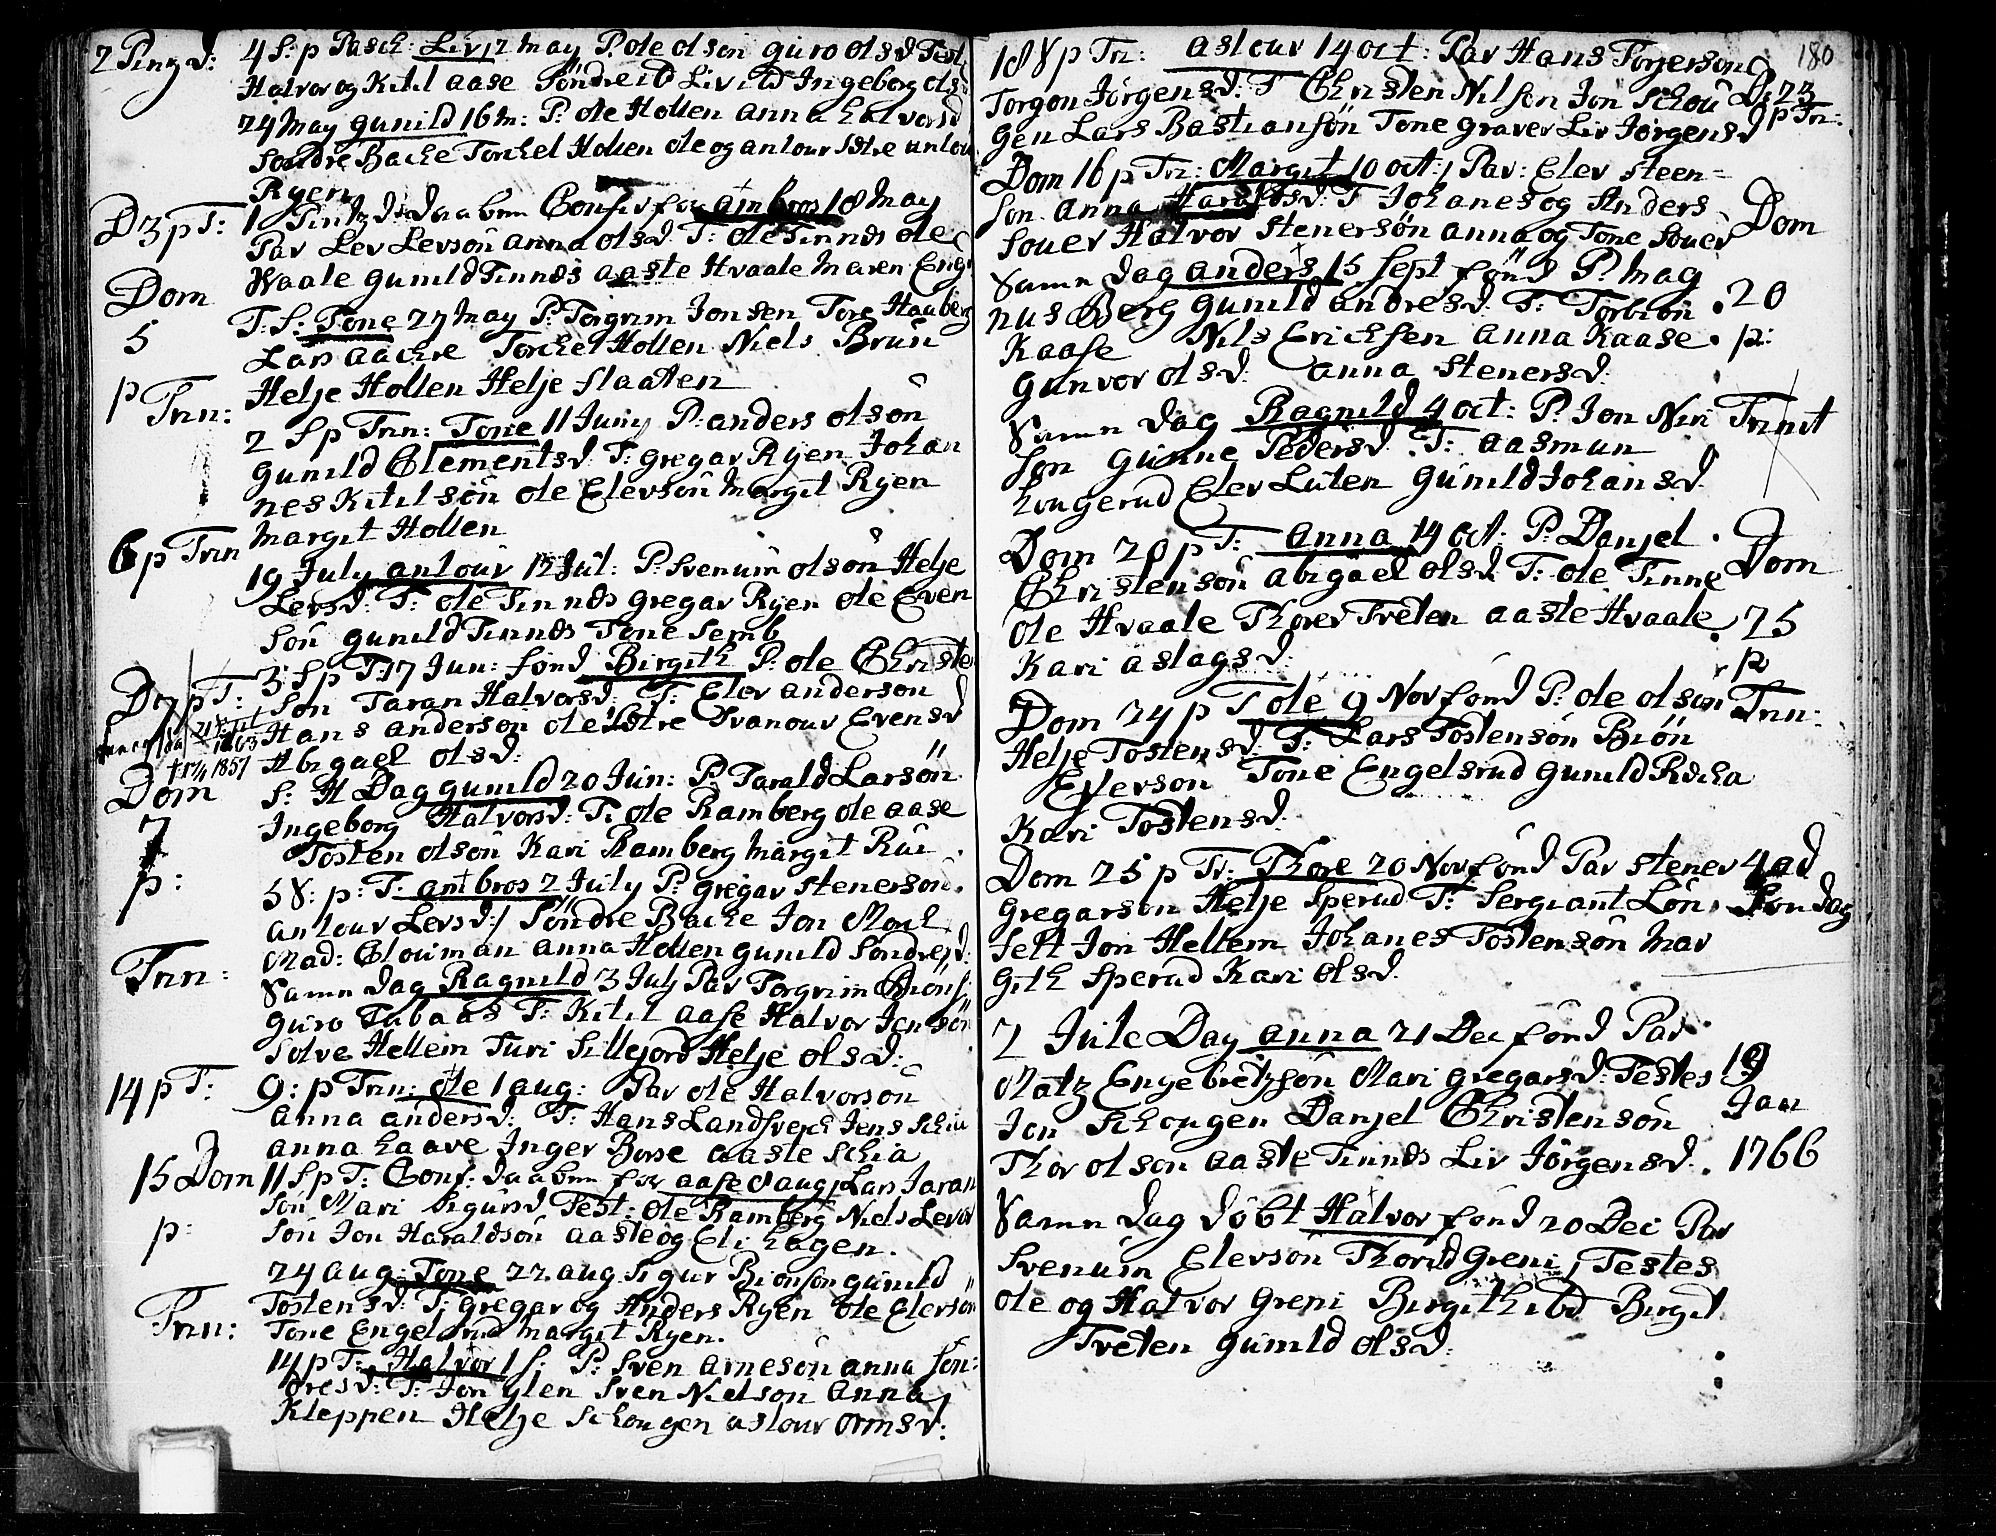 2 Pingd: 4 S: p Pasch: Liv 12 may P. ole olsön guro olsd Test
Halvor og Kitil aase Söndreid Liv Ild Ingeborg ols
24 May gunild 16 m: P. ole Hollen anna halvorsd
Söndre Backe Torchel Hollen ole og anlour
Ryen
D 3 p T: 1 daaben Conf for ambros 18 may
Par Lev Levsön anna olsd T: ole Tinnes ole
Waale gunild Tinnes aaste Hvaale maren
Dom
T: S: Tone 27 May P: Torgrim Jonsen Tore Hauberg
5
Lars aachre Torchel Hollen Niels Brun
p Trin:
Helje Hollen Helje Slaaten
2 S p Trin: Tone 11 Juny P: anders olsön
gunild Clementsd: T: gregar Ryen Johan
nes Kitilsön ole Elevsön Margit Ryen
Margit Hollen
6 p Trin
19 July anlour 12 Jul: P: Svenum olsön Helje
Levsd: T: ole Tinnes gregar Ryen ole Even
sön gunild Tinnes Tone Semb
3 S p T: 17 Jun: fönd Birgith P: ole Christen
D 7 p T:
Son Taran Halvorsd: T: Elev anderson
Hans anderson ole Svanour Evensd
1803
Abigael olsd:
† 17/1 1857
Dom
S: H Dag gunild 20 Jun: P. Tarald Larsön
Ingeborg Halvorsd: T: ole Ramberg ole aase
7
Tosten olsön Kari Ramberg Margit Rui
p:
5 S: p: T: ambros 2 July P: gregar stenerson
anlour Levsd: / Söndre Backe Jon Moch
Mad: Clouman anna Hollen gunild Söndre
Trin:
Samn dag Ragnild 3 July Par Torgrim Biöns
guro T: Kitil aase Halvor Jonsön
Solve Hellem Turi Sillejord Helje olsd:
14 p T:
9: p Trin: ole 1 aug: Par ole Halvorson
Anna andersd: T: Hans Landsverch Jens Schia
anna haave Inger Borse aaste Schia
15 Dom
11 S p T: Conf: daaben for aase aug Lars Taran
sön Mari Sigursd Test: ole Ramberg Niels Levor
p:
Sön Jon Haraldsön aaste og Eli hagen.
24 aug: Tone 22 aug Sigur Biönson gunild
Trin:
Tostensd: T: gregar og Anders Ryen ole Elevsön
Tone Engelsrud Margit Ryen.
14 p T: Halvor 1 S: P: Sven Arnesön anna Sön
dresd: T: Jon glen Sven Nielson Anna
Kleppen Helje Schougen aslour ormsd:
180
18 S p Tr: aslour 14 oct: Par Hans Torjerson
D: 23
Torgon Jörgensd: T Christen Nilsson Jon Schou
p Tr:
gen Lars Bastiansön Tone graver Liv Jörgensd
Dom 16 p Tr: Margit 10 oct: / Par: Elev steen=
son anna Haraldsd: T Johanes og Anders
Dom
Souer Halvor Stenersön anna og Tone Souer
Samn dag anders 15 Sept fönd P: Mag
nus Berg gunild andresd: T: Torbiön
20
Kaase Nils Erichsen anna Kaase.
p:
gunvor olsd: anna Stenersd:
Samn dag Ragnild 4 oct: P: Jon Neri
Trinit
son gunne Pedersd: T: Aasmun
hougerud Elev Luten gunild Johansd
Dom 20 p T: Anna 14 oct: P: Danjel
Dom
Christensön abigael olsd T: ole Tinne
ole Hvaale Thorer Tveten aaste Hvaale
25
Kari aslagsd:
p
Dom 24 p T ole 9 Nov fönd P: ole olsön
Trin:
Helje Tostensd: T: Lars Tostensön Biön
Everson Tone Engelsrud gunild
Kari Tostensd:
Dom 25 p Tr: Thore 20 Nov fönd Par Stener
4 ad
gregarson Helje Sperud T: Sergiant Lön
Söndag
felt Jon Hellem Johanes Tostensön Mar
gith Sperud Kari olsd:
2 Jule Day anna 21 Dec fönd Par
Matz Engebretzsön Mari gregarsd: Testes
19
Jan
Jon Schougen Danjel Christensön
Thor olsön aaste Tinnes Liv Jörgensd:
1766
Samn dag döbt Halvor fönd 20 Dec Par
Svenum Elevson Thorild greni / Testes
ole og Halvor Greni Birgith ibd Birgit
Tveten gunild olsd: